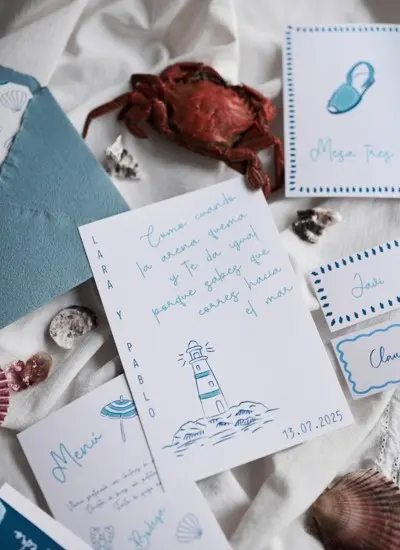 Mesa Tres
LARA Y PABLO
Como cuando
la arena quema
y te da igual
porque sabes que
corres hacia
el mar
13.07.2025
Javi
Menú
Bodega